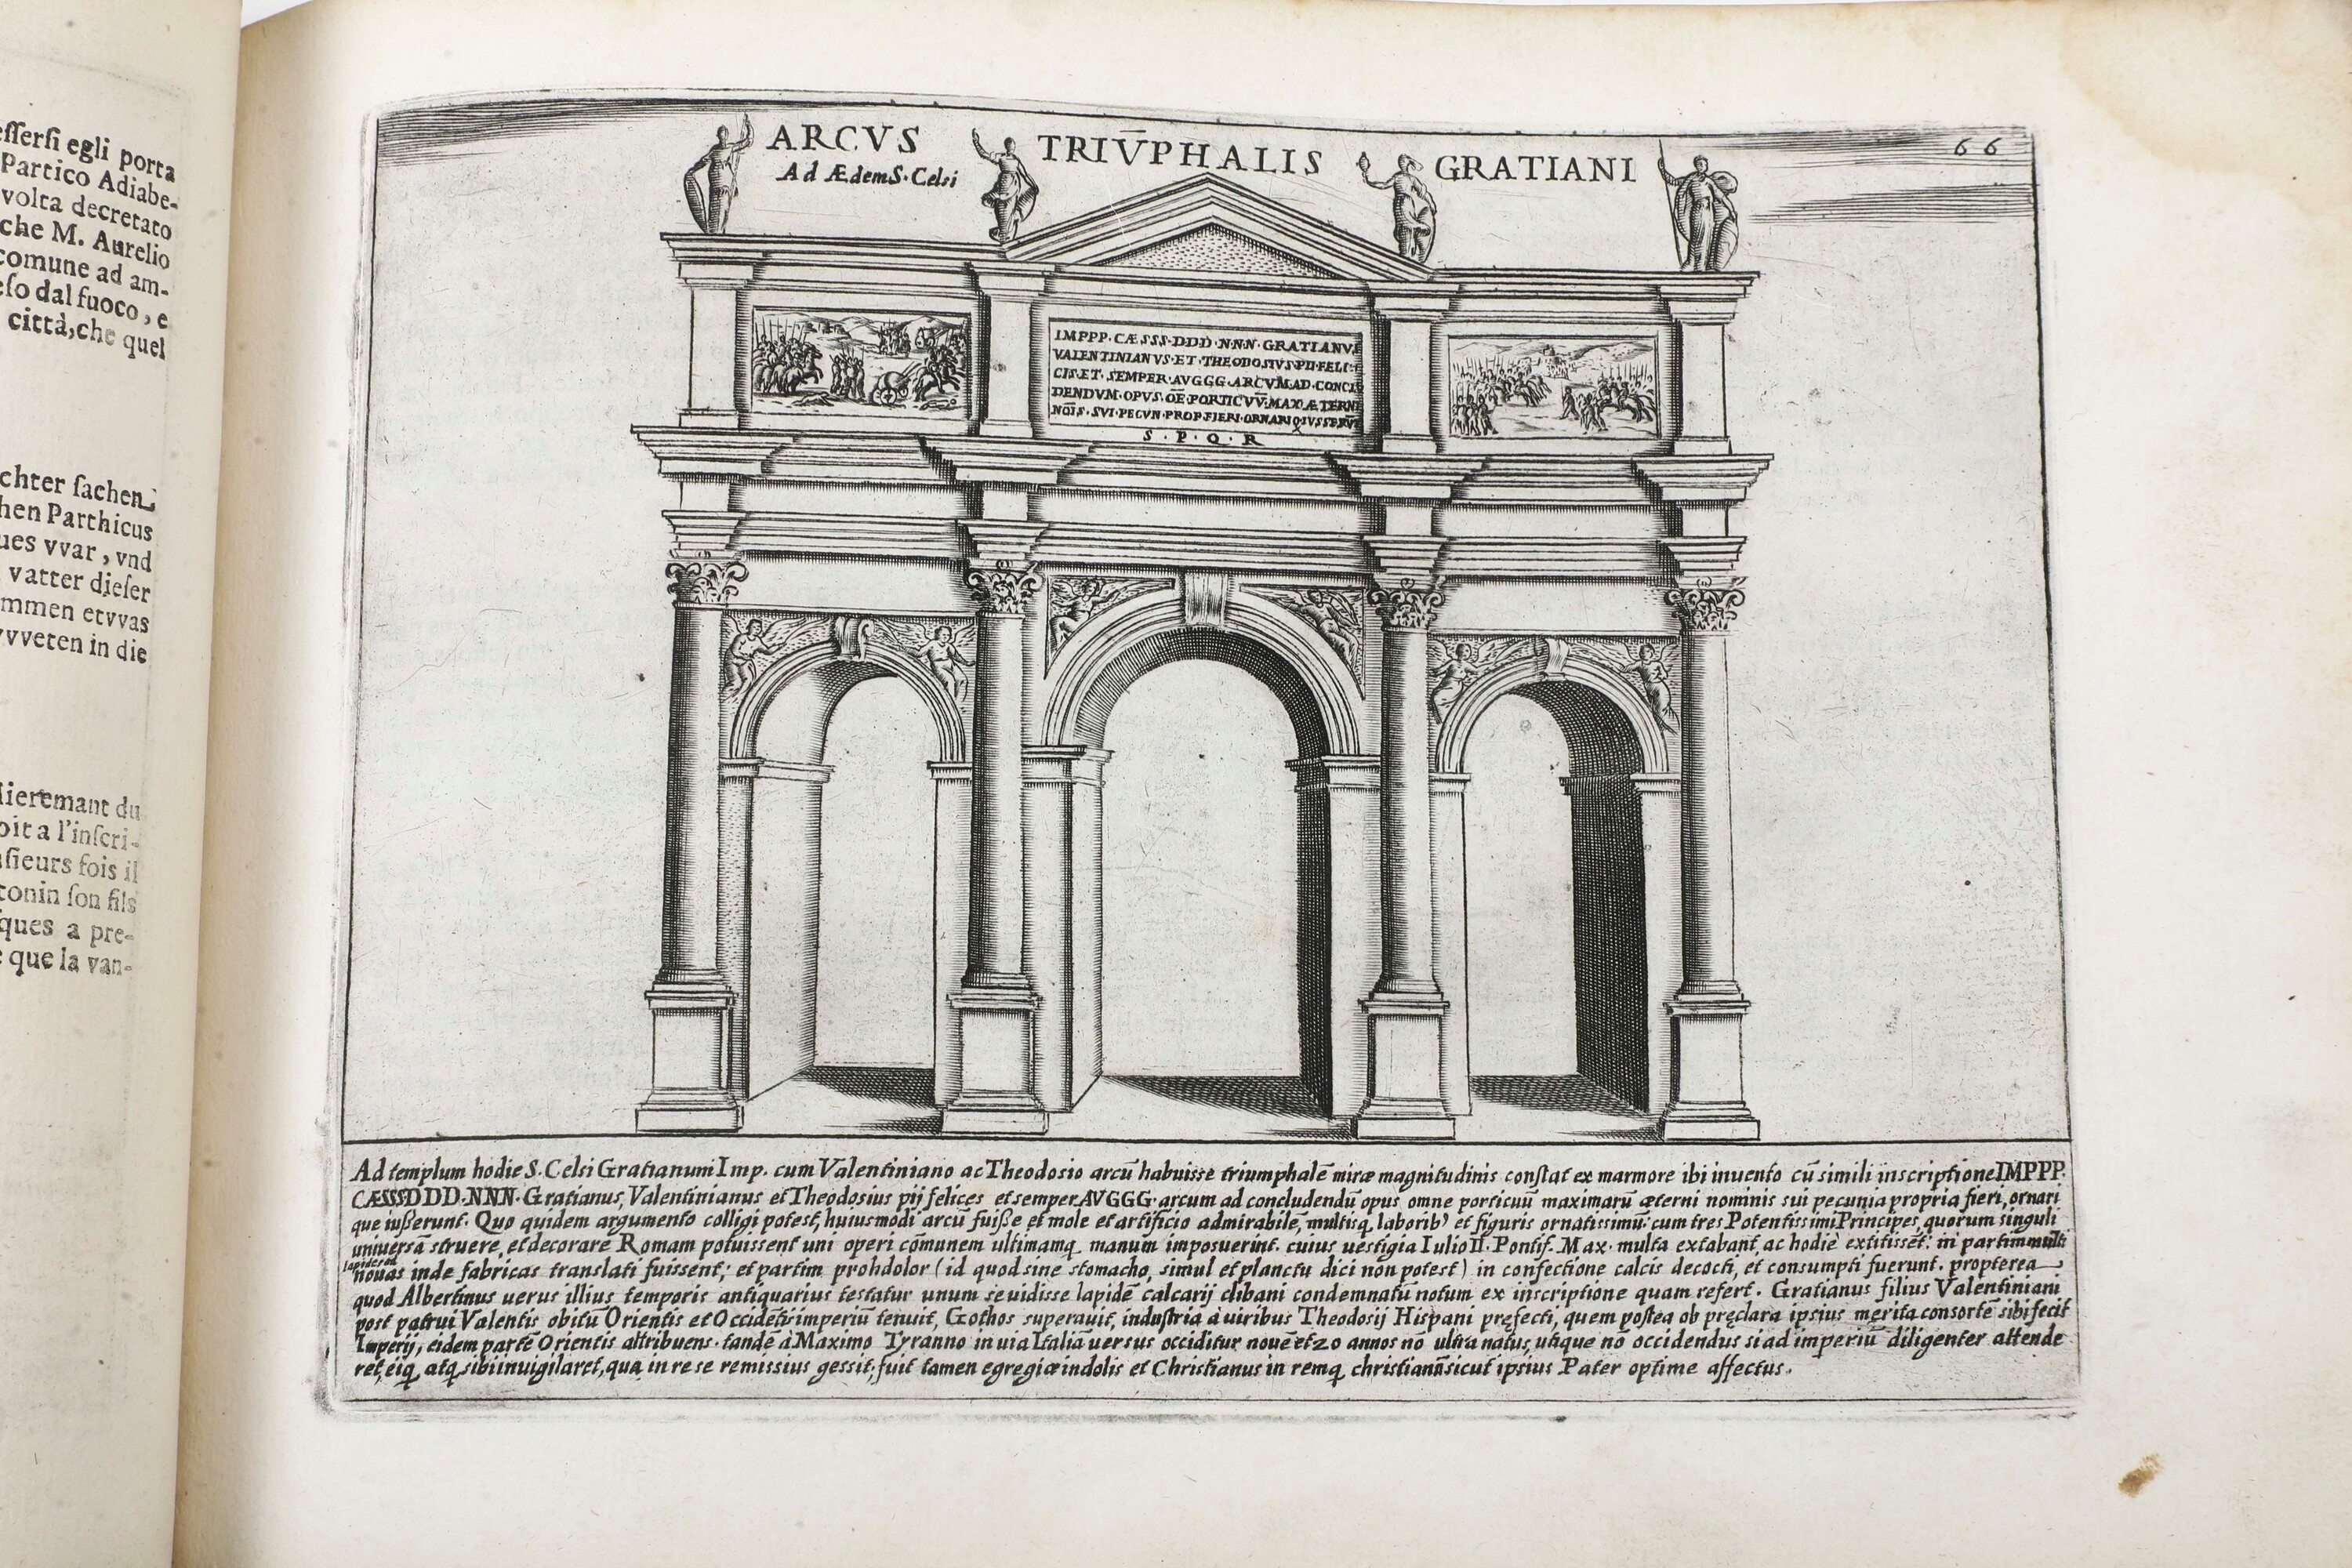 essersi egli porta
Partico Adiabe-
volta decretato
che M. Aurelio
comune ad am-
eso dal fuoco, e
città, che quel
chter sachen
hen Parthicus
ues vvar, vnd
vatter dieser
mmen etvvas
vvveten in die
lieremant du
oit a l'inscri-
usieurs fois il
tonin son fils
ques a pre-
e que la van-
ARCVS TRIV̄PHALIS GRATIANI
66
Ad Ædem S. Celsi
IMPPP·CÆSSS·DDD·NNN·GRATIANVS
VALENTINIANVS·ET·THEODOSIVS·PII·FELI
CIS·ET·SEMPER·AVGGG·ARCVM·AD·CONCLV
DENDVM·OPVS·OE̅·PORTICVV̅·MAX·ÆTERNI
NOI̅S·SVI·PECVN·PROP·FIERI·ORNARIQ·IVSSERVT
S·P·Q·R
Ad templum hodie S. Celsi Gratianum Imp. cum Valentiniano ac Theodosio arcū habuisse triumphalē miræ magnitudinis constat ex marmore ibi inuento cū simili inscriptione IMPPP.
CÆSSS DDD·NNN·Gratianus, Valentinianus et Theodosius pij felices et semper AVGGG·arcum ad concludendū opus omne porticuū maximarū æterni nominis sui pecunia propria fieri, ornari
que iusserunt. Quo quidem argumento colligi potest, huiusmodi arcū fuisse et mole et artificio admirabile, multisq, laborib9 et figuris ornatissimū: cum tres Potentissimi Principes, quorum singuli
uniuersā struere, et decorare Romam potuissent uni operi cōmunem ultimamq, manum imposuerint. cuius uestigia Iulio II. Pontif. Max. multa extabant, ac hodiè extitissēt: in partim multi
lapides ad
nouas inde fabricas translati fuissent; et partim prohdolor (id quod sine stomacho, simul et planctu dici non potest) in confectione calcis decocti, et consumpti fuerunt. propterea
quod Albertinus uerus illius temporis antiquarius testatur unum se uidisse lapidē calcarij clibani condemnatū notum ex inscriptione quam refert. Gratianus filius Valentiniani
post patrui Valentis obitū Orientis et Occidētis imperiū tenuit, Gothos superauit, industria à uiribus Theodosij Hispani prefecti, quem postea ob pręclara ipsius merita consortē sibi fecit
Imperij, eidem partē Orientis attribuens. tandē à Maximo Tyranno in uia Italiā uersus occiditur nouē et 20 annos nō ultra natus, utique nō occidendus si ad imperiū diligenter attende
ret, eiq, atq, sibi inuigilaret, qua in re se remissius gessit; fuit tamen egregiæ indolis et Christianus in remq, christianā sicut ipsius Pater optime affectus.